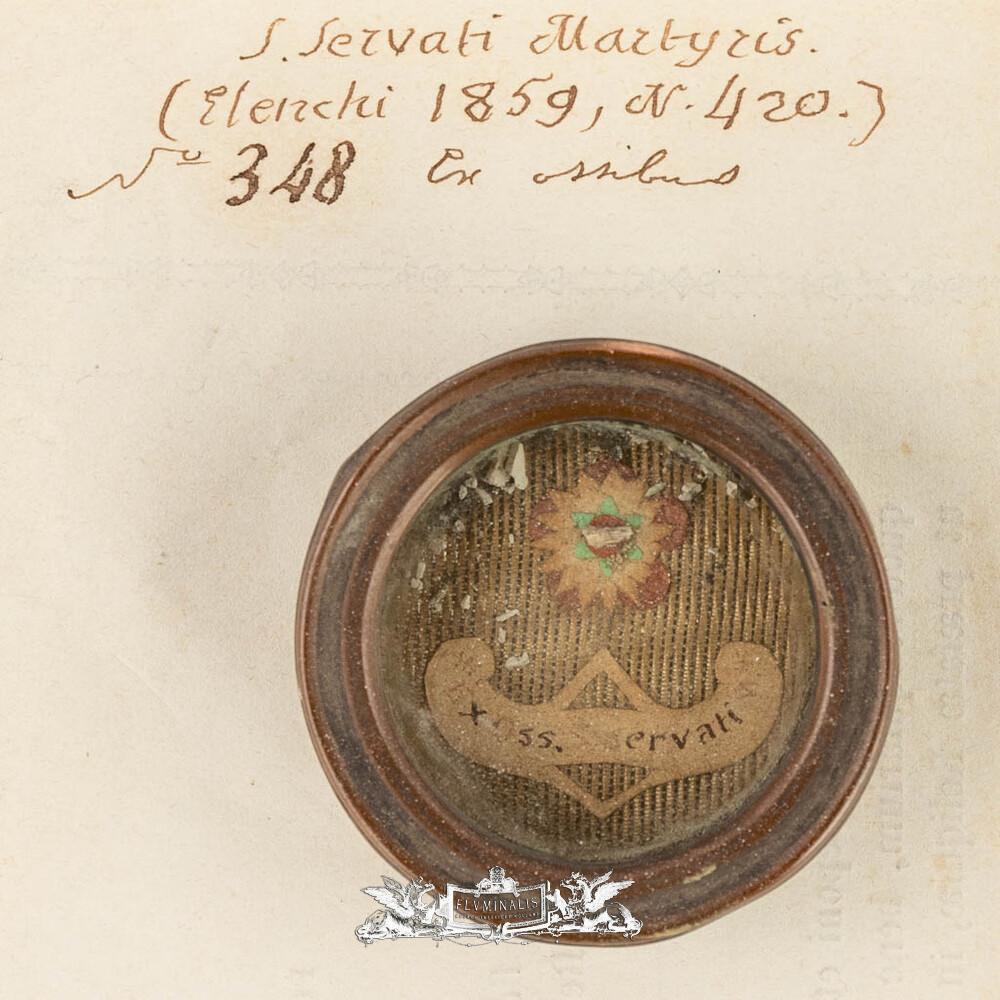 S. Servati Martyris.
(Elenchi 1859, N. 420.)
No 348 Ex ossibus
+ Oss. Servati M
FLVMINALIS